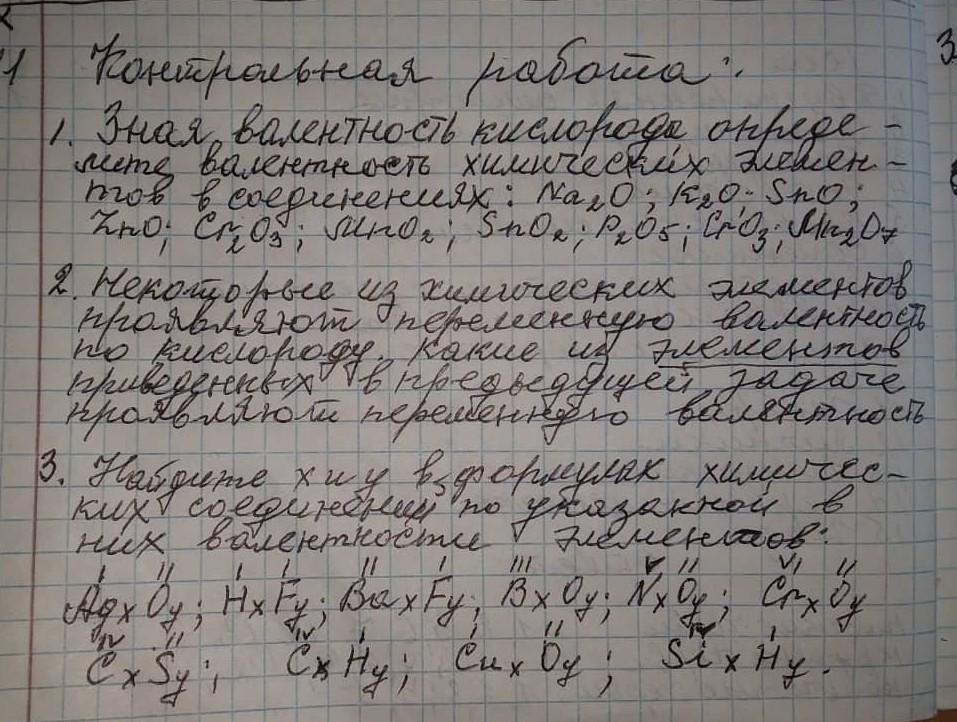 Контрольная работа:
1. Зная валентность кислорода опреде-
лите валентность химических элемен-
тов в соединениях: Na₂O; K₂O; SnO;
ZnO; Cr₂O₃; MnO₂; SnO₂; P₂O₅; CrO₃; Mn₂O₇
2. Некоторые из химических элементов
проявляют переменную валентность
по кислороду. Какие из элементов
приведенных в предыдущей задаче
проявляют переменную валентность
3. Найдите x и y в формулах химичес-
ких соединений по указанной в
них валентности элементов:
I II I I II I III V II VI II
AgxOy; HxFy; BaxFy; BxOy; NxOy; CrxOy
IV II IV I I II IV I
CxSy; CxHy; CuxOy; SixHy.